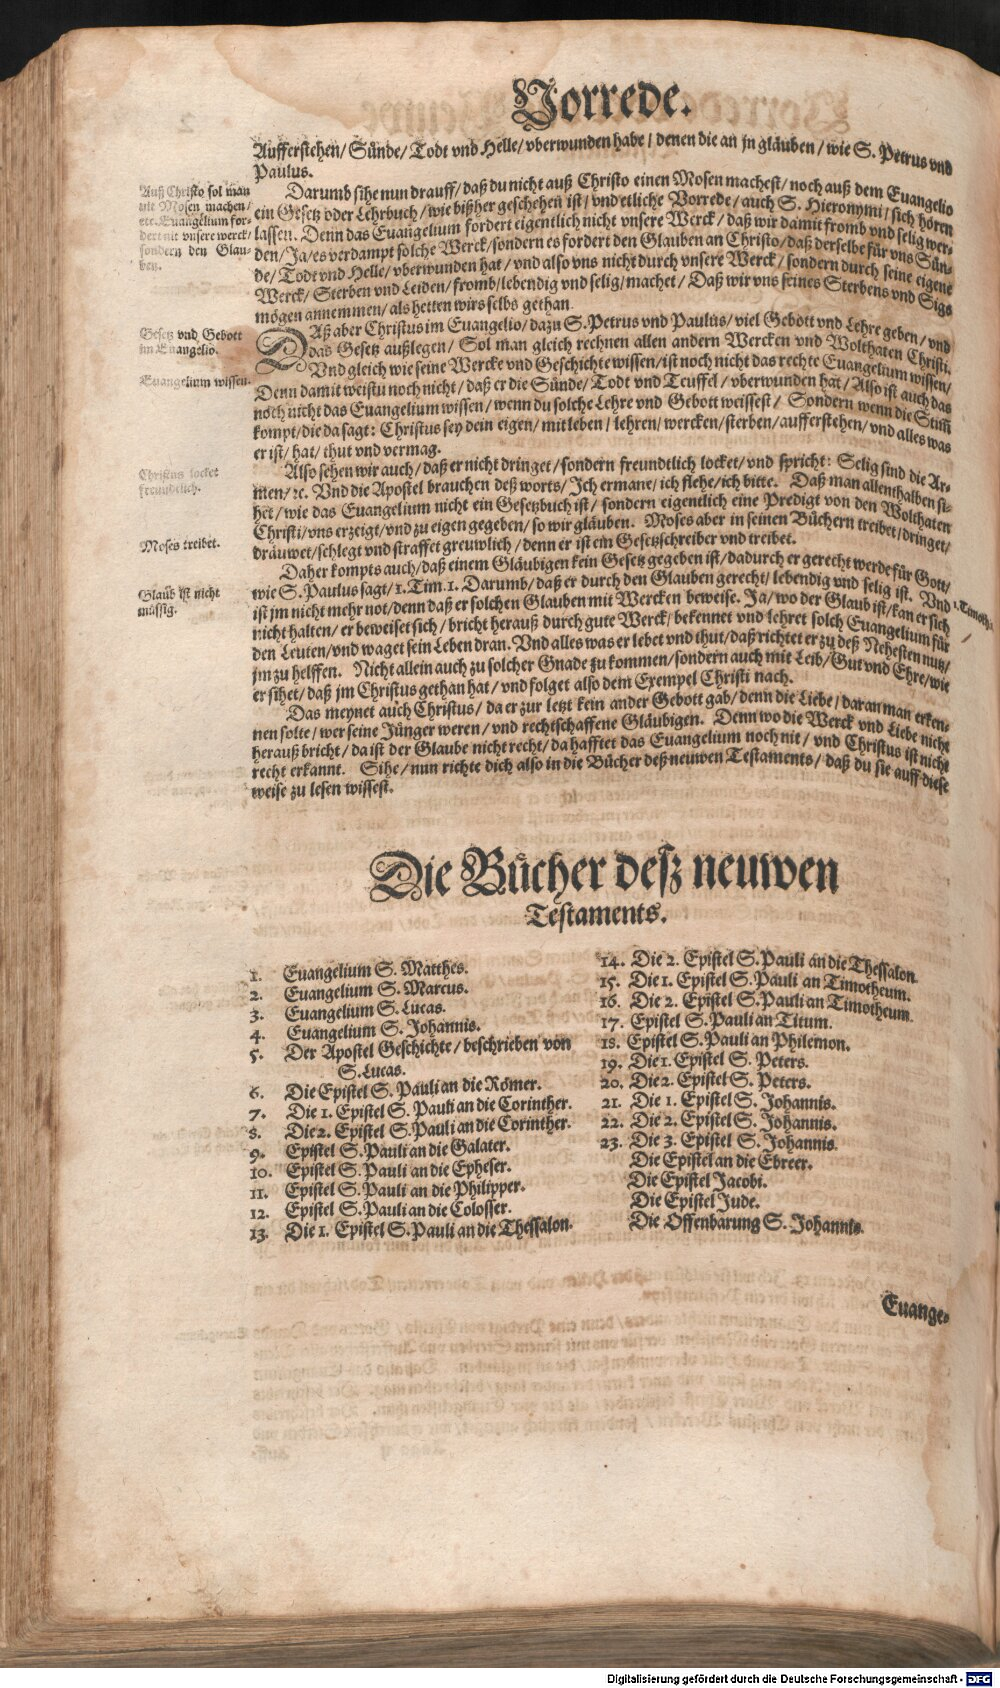 Vorrede.
Aufferstehen/ Sünde/ Todt vnd Helle/ vberwunden habe/ denen die an jn gläuben/ wie S. Petrus vnd
Paulus.
Auß Christo sol man
nit Mosen machen/
etc. Euangelium for-
dert nit vnsere werck/
sondern den Glau-
ben.
Darumb sihe nun drauff/ daß du nicht auß Christo einen Mosen machest/ noch auß dem Euangelio
ein Gesetz oder Lehrbuch/ wie bißher geschehen ist/ vnd etliche Vorrede/ auch S. Hieronymi/ sich hören
lassen. Denn das Euangelium fordert eigentlich nicht vnsere Werck/ daß wir damit fromb vnd selig wer-
den/ Ja/ es verdampt solche Werck/ sondern es fordert den Glauben an Christo/ daß derselbe für vns Sün-
de/ Todt vnd Helle/ vberwunden hat/ vnd also vns nicht durch vnsere Werck/ sondern durch seine eigene
Werck/ Sterben vnd Leiden/ fromb/ lebendig vnd selig/ machet/ Daß wir vns seines Sterbens vnd Sigs
mögen annemmen/ als hetten wirs selbs gethan.
Gesetz vnd Gebott
im Euangelio.
Euangelium wissen.
DAß aber Christus im Euangelio/ dazu S. Petrus vnd Paulus/ viel Gebott vnd Lehre geben/ vnd
das Gesetz außlegen/ Sol man gleich rechnen allen andern Wercken vnd Wolthaten Christi.
Vnd gleich wie seine Wercke vnd Geschichte wissen/ ist noch nicht das rechte Euangelium wissen/
Denn damit weistu noch nicht/ daß er die Sünde/ Todt vnd Teuffel/ vberwunden hat/ Also ist auch das
noch nicht das Euangelium wissen/ wenn du solche Lehre vnd Gebott weissest/ Sondern wenn die Stim̃
kompt/ die da sagt: Christus sey dein eigen/ mit leben/ lehren/ wercken/ sterben/ aufferstehen/ vnd alles was
er ist/ hat/ thut vnd vermag.
Christus locket
freundlich.
Also sehen wir auch/ daß er nicht dringet/ sondern freundtlich locket/ vnd spricht: Selig sind die Ar-
men/ ꝛc. Vnd die Apostel brauchen deß worts/ Ich ermane/ ich flehe/ ich bitte. Daß man allenthalben si-
het/ wie das Euangelium nicht ein Gesetzbuch ist/ sondern eigentlich eine Predigt von den Wolthaten
Christi/ vns erzeigt/ vnd zu eigen gegeben/ so wir gläuben. Moses aber in seinen Büchern treibet/ dringet/
Moses treibet.
dräuwet/ schlegt vnd straffet greuwlich/ denn er ist ein Gesetzschreiber vnd treibet.
Glaub ist nicht
müssig.
Daher kompts auch/ daß einem Gläubigen kein Gesetz gegeben ist/ dadurch er gerecht werde für Gott/
wie S. Paulus sagt/ 1. Tim. 1. Darumb/ daß er durch den Glauben gerecht/ lebendig vnd selig ist. Vnd
1. Timoth.
ist jm nicht mehr not/ denn daß er solchen Glauben mit Wercken beweise. Ja/ wo der Glaub ist/ kan er sich
nicht halten/ er beweiset sich/ bricht herauß durch gute Werck/ bekennet vnd lehret solch Euangelium für
den Leuten/ vnd waget sein Leben dran. Vnd alles was er lebet vnd thut/ daß richtet er zu deß Nehesten nutz/
jm zu helffen. Nicht allein auch zu solcher Gnade zu kommen/ sondern auch mit Leib/ Gut vnd Ehre/ wie
er sihet/ daß jm Christus gethan hat/ vnd folget also dem Exempel Christi nach.
Das meynet auch Christus/ da er zur letzt kein ander Gebott gab/ denn die Liebe/ daran man erken-
nen solte/ wer seine Jünger weren/ vnd rechtschaffene Gläubigen. Denn wo die Werck vnd Liebe nicht
herauß bricht/ da ist der Glaube nicht recht/ da hafftet das Euangelium noch nit/ vnd Christus ist nicht
recht erkannt. Sihe/ nun richte dich also in die Bücher deß neuwen Testaments/ daß du sie auff diese
weise zu lesen wissest.
Die Bücher deß neuwen
Testaments.
1. Euangelium S. Matthes.
2. Euangelium S. Marcus.
3. Euangelium S. Lucas.
4. Euangelium S. Johannis.
5. Der Apostel Geschichte/ beschrieben von
S. Lucas.
6. Die Epistel S. Pauli an die Römer.
7. Die 1. Epistel S. Pauli an die Corinther.
8. Die 2. Epistel S. Pauli an die Corinther.
9. Epistel S. Pauli an die Galater.
10. Epistel S. Pauli an die Epheser.
11. Epistel S. Pauli an die Philipper.
12. Epistel S. Pauli an die Colosser.
13. Die 1. Epistel S. Pauli an die Thessalon.
14. Die 2. Epistel S. Pauli an die Thessalon.
15. Die 1. Epistel S. Pauli an Timotheum.
16. Die 2. Epistel S. Pauli an Timotheum.
17. Epistel S. Pauli an Titum.
18. Epistel S. Pauli an Philemon.
19. Die 1. Epistel S. Peters.
20. Die 2. Epistel S. Peters.
21. Die 1. Epistel S. Johannis.
22. Die 2. Epistel S. Johannis.
23. Die 3. Epistel S. Johannis.
Die Epistel an die Ebreer.
Die Epistel Jacobi.
Die Epistel Jude.
Die Offenbarung S. Johannis.
Euange-
Digitalisierung gefördert durch die Deutsche Forschungsgemeinschaft - DFG